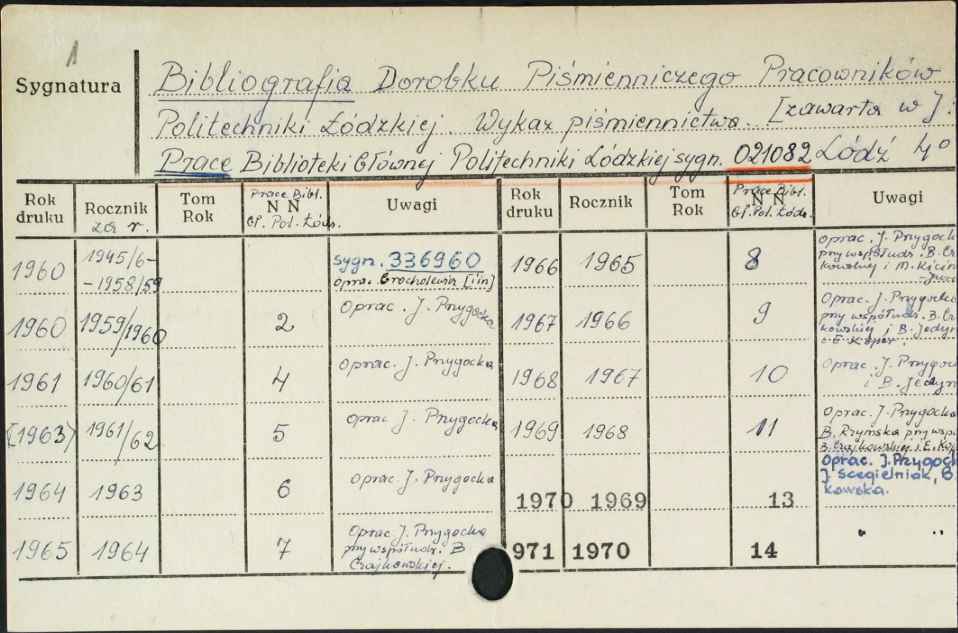 1
Sygnatura
Bibliografia Dorobku Piśmienniczego Pracowników
Politechniki Łódzkiej. Wykaz piśmiennictwa. [zawarta w]:
Prace Biblioteki Głównej Politechniki Łódzkiej sygn. 021082 Łódź 40
Rok druku Rocznik za r. Tom Rok Prace Bibl. N N Gł. Pol. Łódz. Uwagi Rok druku Rocznik Tom Rok Prace Bibl. N N Gł. Pol. Łódz. Uwagi
1960 1945/6- -1958/59 sygn. 336960 oprac. [i in]
1960 1959/1960 2 Oprac. J. Przygocka
1961 1960/61 4 Oprac. J. Przygocka
[1963] 1961/62 5 Oprac. J. Przygocka
1964 1963 6 Oprac. J. Przygocka
1965 1964 7 Oprac. J. Przygocka przy współudz. B Czajkowskiej.
1966 1965 8 Oprac. J. Przygock przy współudz. B. Cz kowskiej i M. Kicin
1967 1966 9 Oprac. J. Przygocka przy współudz. B. Cz kowskiej i B. Jedyn i E. Koper.
1968 1967 10 Oprac. J. Przygoc i B. Jedyn
1969 1968 11 Oprac. J. Przygocka B. Rzymska przy wsp B. Czajkowskiej i E. Kop
1970 1969 13 Oprac. J. Przygock J Scegielniak, B. kowska.
971 1970 14 " "